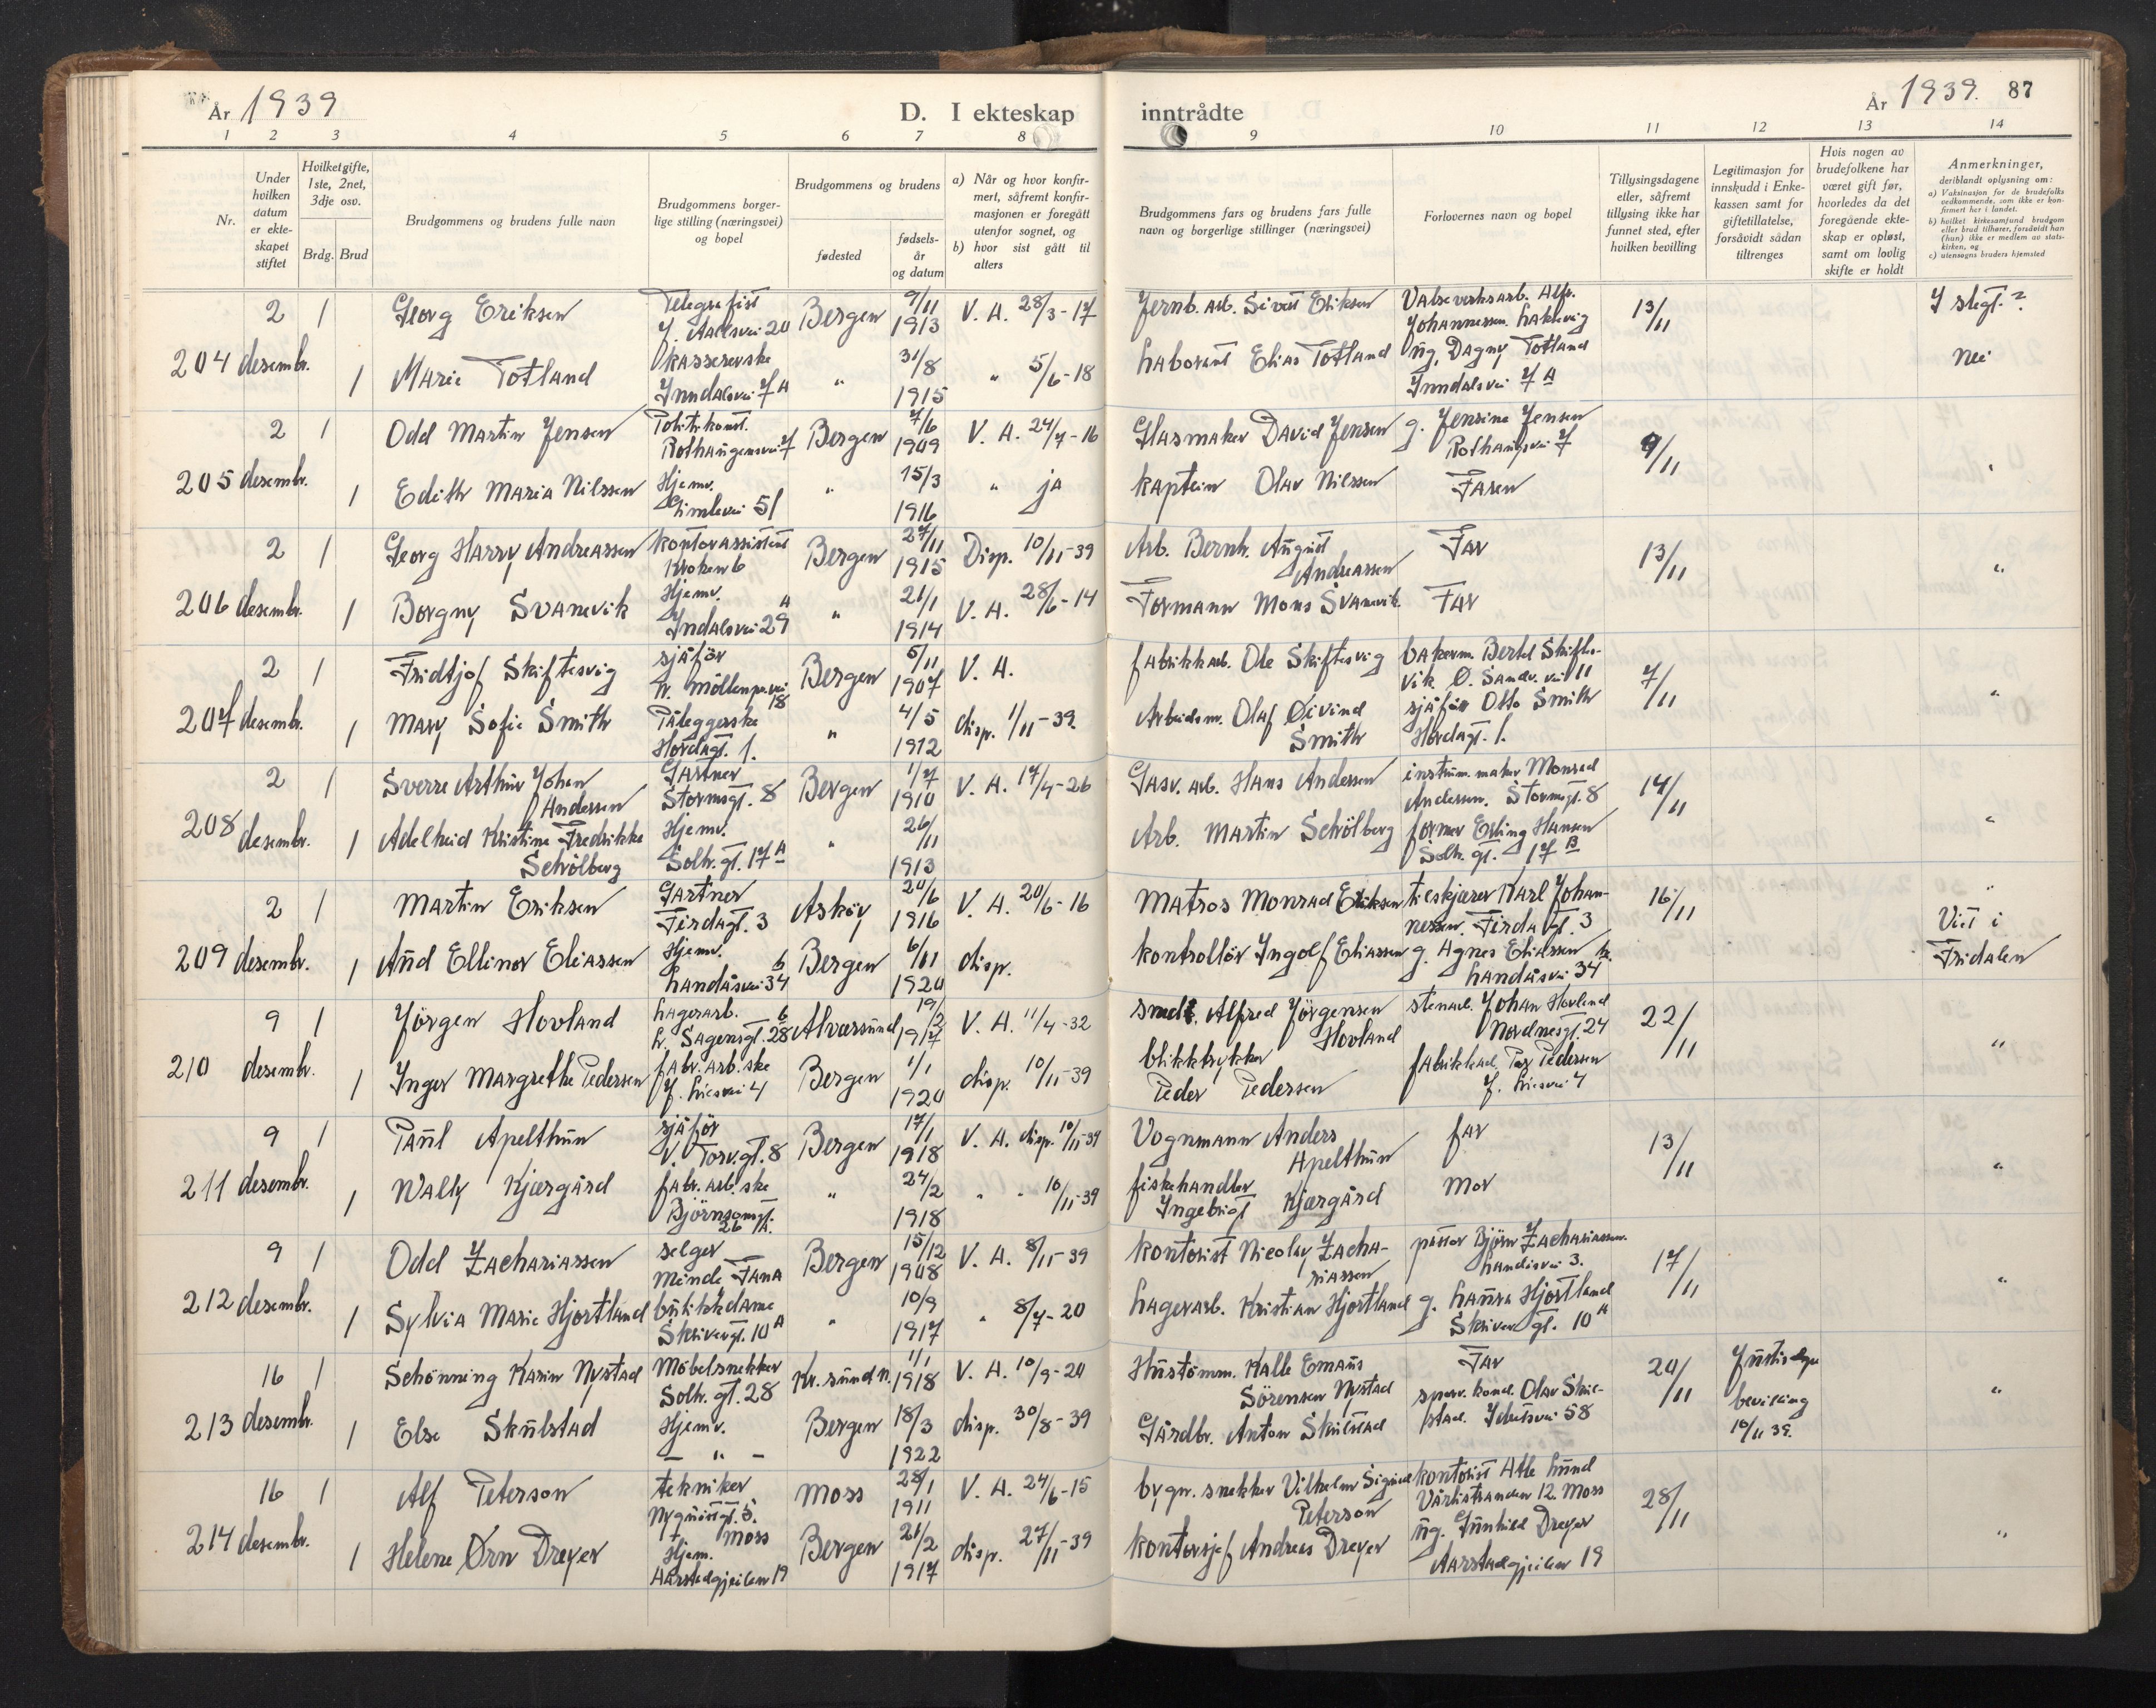 År 1939
D. I ekteskap
inntrådte
År 1939. 87
1 2 3 4 5 6 7 8 9 10 11 12 13 14
Nr.
Under hvilken datum er ekteskapet stiftet
Hvilketgifte, 1ste, 2net, 3dje osv.
Brdg. Brud
Brudgommens og brudens fulle navn
Brudgommens borgerlige stilling (næringsvei) og bopel
Brudgommens og brudens
fødested
fødselsår og datum
a) Når og hvor konfirmert, såfremt konfirmasjonen er foregått utenfor sognet, og
b) hvor sist gått til alters
Brudgommens fars og brudens fars fulle navn og borgerlige stillinger (næringsvei)
Forlovernes navn og bopel
Tillysingsdagene eller, såfremt tillysing ikke har funnet sted, efter hvilken bevilling
Legitimasjon for innskudd i Enkekassen samt for giftetillatelse, forsåvidt sådan tiltrenges
Hvis nogen av brudefolkene har været gift før, hvorledes da det foregående ekteskap er opløst, samt om lovlig skifte er holdt
Anmerkninger, deriblandt oplysning om:
a) Vaksinasjon for de brudefolks vedkommende, som ikke er konfirmert her i landet.
b) hvilket kirkesamfund brudgom eller brud tilhører, forsåvidt han (hun) ikke er medlem av statskirken, og
c) utensogns bruders hjemsted
204 2 desembr. 1 Georg Eriksen Telegrafist Bergen 9/11 1913 V. A. 28/3-17 Jernb. arb. Sivert Eriksen Valseverksarb. Alfr. Johannessen 13/11 I slegt.?
1 Marie Totland kassererske Inndalsvei 7 A " 31/8 1915 " 5/6-18 Laborant Elias Totland ug. Dagny Totland Inndalsvei 7 A nei
205 2 desembr. 1 Odd Martin Jensen Politikonst. Rothaugensvei 7 Bergen 7/6 1909 V. A. 24/7-16 Glasmaker David Jensen g. Jensine Jensen Rothaugsvei 7 9/11
1 Edith Maria Nilssen Hjemv. Gimlevei 51 " 15/3 1916 " ja kaptein Olav Nilssen Faren "
206 2 desembr. 1 Georg Harry Andreassen kontorassistent Kroken 6 Bergen 27/11 1915 Disp. 10/11-39 Arb. Bernh. August Andreassen Far 13/11 "
1 Borgny Svanevik Hjemv. Indalsvei 29 A " 21/1 1914 V. A. 28/6-14 Formann Mons Svanevik Far
207 2 desembr. 1 Fridtjof Skiftesvig sjåför Möllenpr.vei 18 Bergen 5/11 1907 V. A. fabrikkarb. Ole Skiftesvig bakerm. Bertel Skiftesvik Ø. Sandv. vei 11 7/11
1 Mary Sofie Smith Påleggerske Hordagt. 1. " 4/5 1912 disp. 1/11-39 Arbeidsm. Olaf Øivind Smith sjåför Otto Smith Hordagt. 1. "
208 2 desembr. 1 Sverre Arthur Johan Andersen Gartner Stormsgt. 8 Bergen 1/7 1910 V. A. 17/4-26 Gasv. arb. Hans Andersen instrum. maker Monrad Andersen. Stormsgt. 8 14/11
1 Adelheid Kristine Fredrikke Schölberg Hjemv. Solh. gt. 17 A " 26/11 1913 Arb. Martin Schölberg former Erling Hansen Solh. gt. 17 B "
209 2 desembr. 1 Martin Eriksen Gartner Firdagt. 3 Asköy 20/6 1916 V. A. 20/6-16 Matros Monrad Eriksen Karl Johannessen. Firdagt. 3 16/11 "
1 Aud Ellinor Eliassen Hjemv. Landåsvei 34 b Bergen 6/11 1920 disp. kontrollör Ingolf Eliassen g. Agnes Eliassen Landåsvei 34 b. Viet i Fridalen
210 9 desembr. 1 Jörgen Hovland Lagerarb. L. Sagensgt. 28 b Alversund 19/2 1917 V. A. 11/4-32 smed. Alfred Jörgensen Hovland stenarb. Johan Hovland Nordnesgt. 24 22/11
1 Inger Margrethe Pedersen fabr. arb.ske J. Liesvei 4 Bergen 1/1 1920 disp. 10/11-39 blikktrykker Peder Pedersen fabrikkarb. Per Pedersen J. Liesvei 4 "
211 9 desembr. 1 Paul Apelthun sjåför V. Torv.gt. 8 Bergen 17/1 1918 V. A. disp. 10/11-39 Vognmann Anders Apelthun far 13/11
1 Wally Kjærgård fabr. arb.ske Björnsonsgt. 26 A. " 24/2 1918 " " 10/11-39 fiskehandler Ingebrigt Kjærgård Mor "
212 9 desembr. 1 Odd Zachariassen selger Minde Fana Bergen 15/12 1908 V. A. 8/11-39 kontorist Nicolay Zachariassen pastor Björn Zachariassen. Landåsvei 3. 17/11
1 Sylvia Marie Hjortland butikkdame Skivergt. 10 A " 10/9 1917 " 8/7-20 Lagerarb. Kristian Hjortland g. Laura Hjortland Skivergt. 10 A "
213 16 desembr. 1 Schönning Karin Nystad Möbelsnekker Solh. gt. 28 Kr.sund N. 1/1 1918 V. A. 10/9-20 Hustömm. Kalle Emaus Sörensen Nystad Far 20/11 bevilling 10/11 39. "
1 Else Skulstad Hjemv. – " – Bergen 18/3 1922 disp. 30/8-39 Gårdbr. Anton Skulstad sporv. kond. Olav Skulstad. 58
214 16 desembr. 1 Alf Peterson tekniker Nyquistgt. 5. Moss Moss 28/1 1911 V. A. 24/6-15 bygn. snekker Vilhelm Sigurd Peterson kontorist Atle Lund Vårlistranden 12. Moss 28/11
1 Helene Ørn Dreyer Hjem. Aarstadgjeilen 19 Bergen 21/2 1917 disp. 27/11-39 kontorsjef Andreas Dreyer ug. Gunhild Dreyer Aarstadgjeilen 19 "